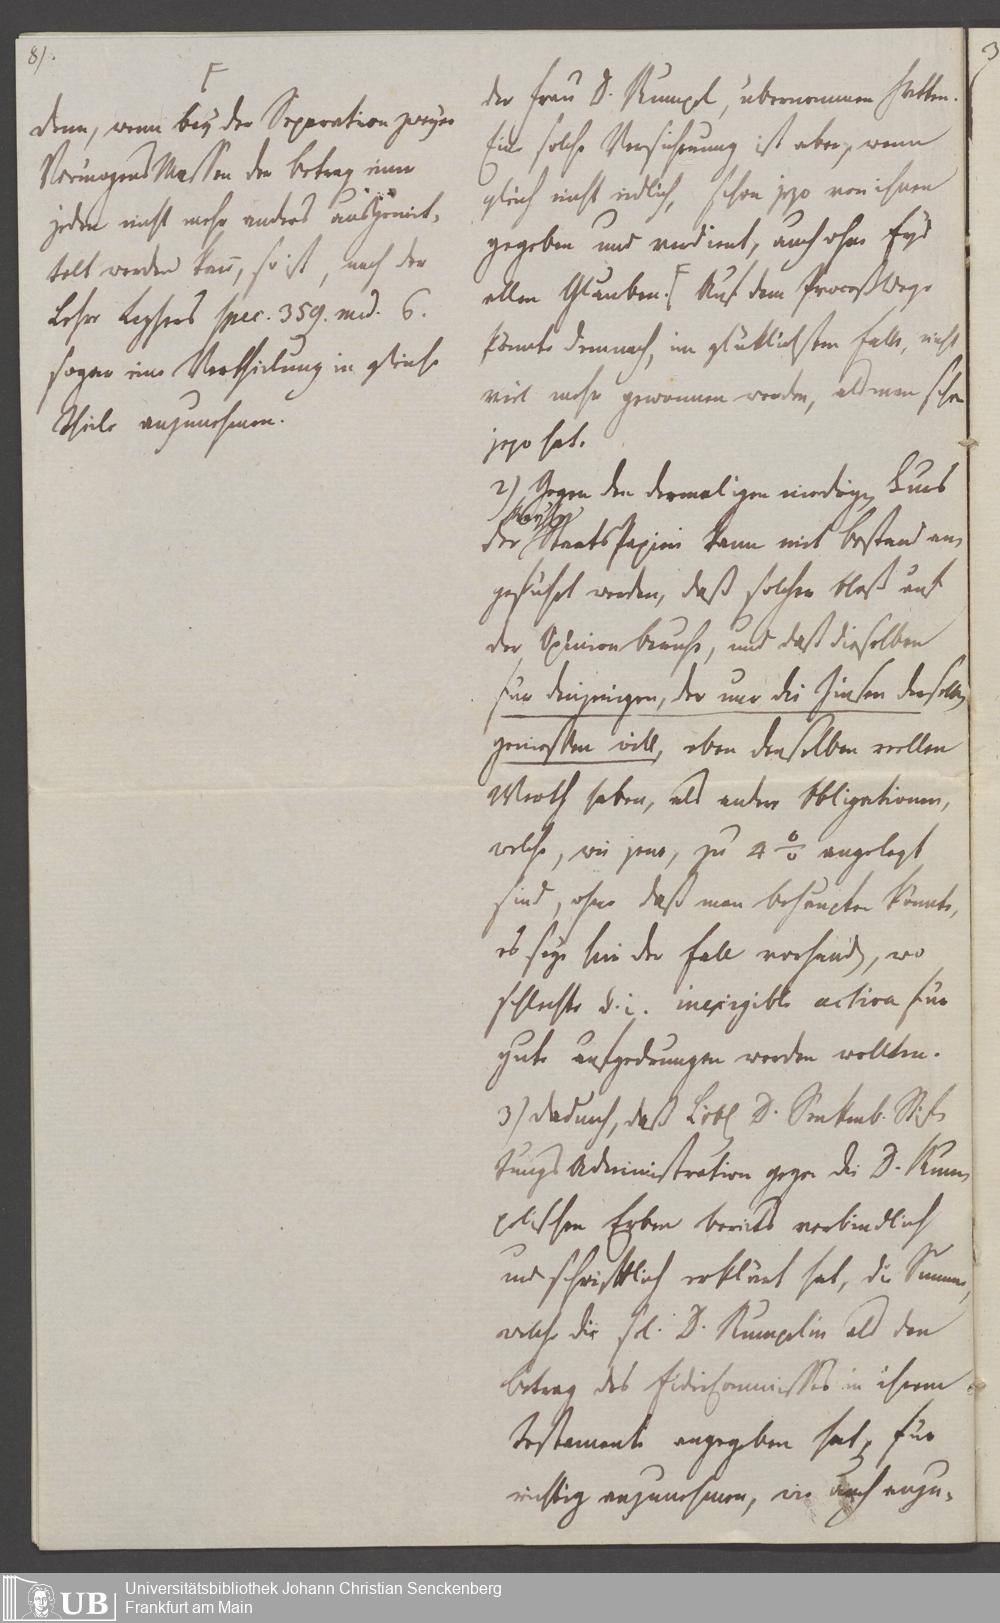 8/.
F
denn, wenn bey der Separation zweyer
Vermögens Massen der betrag einer
jeden nicht mehr anders ausgemit-
telt werden kan, so ist, nach der
Lehre Leysers spec. 359. med. 6.
sogar eine Vertheilung in gleiche
Theile anzunehmen.
der Frau D. Rumpel, übernommen hätten.
Eine solche Versicherung ist aber, wenn
gleich nicht eidlich, schon jezo von ihnen
gegeben und verdient, auch ohne Eyd
allen Glauben. F Auf dem Proceß Wege
könnte demnach, im glücklichsten Falle, nicht
viel mehr gewonnen werden, als man schon
jezo hat.
2) Gegen den dermaligen niedrigen Curs
der Staats Papiere kann mit bestand an-
geführt werden, daß solcher bloß auf
der Opinion beruhe, und daß dieselben
für denjenigen, der nur die Zinsen derselben
geniessen will, eben denselben reellen
Werth haben, als andere Obligationen,
welche, wie jene, zu 4 % angelegt
sind, ohne daß man behaupten könnte,
es seye hier der Fall vorhanden, wo
schlechte d. i. inexigible activa für
gute aufgedrungen werden wollten.
3) Dadurch, daß Löbl. D. Senkenb. Stif-
tungs Administration gegen die D. Rum-
pelischen Erben bereits verbindlich
und schriftlich erklärt hat, die Summe,
welche die sel. D. Rumpelin als den
betrag des Fideicommisses in ihrem
Testamente angegeben hat, für
richtig anzunehmen, wie auch anzu-
3
Universitätsbibliothek Johann Christian Senckenberg
Frankfurt am Main
UB